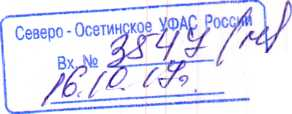 Северо - Осетинское УФАС России
Вх. № 3847
16.10.17г.